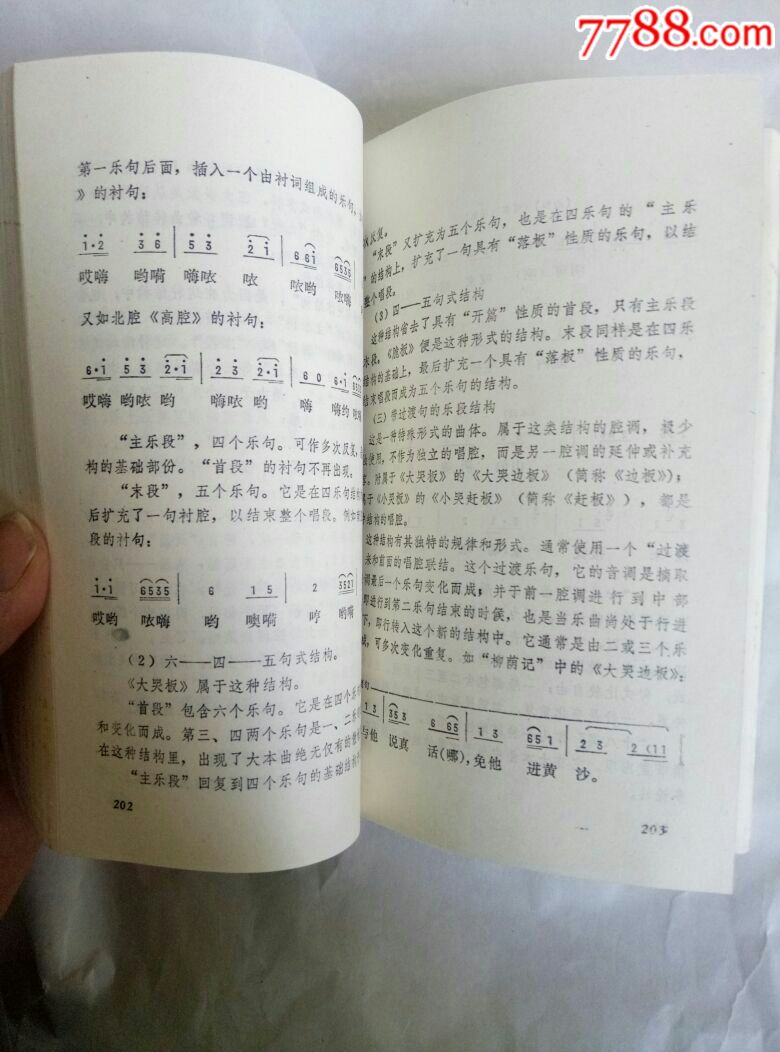 7788.com
第一乐句后面，插入一个由衬词组成的乐句，
》的衬句：
1·2 3 6 | 5 3 2 1 | 6 6 1 6535
哎嗨 哟嗬 嗨哝 哝 哝哟 哝嗨
又如北腔《高腔》的衬句：
6·1 5 3 2·1 | 2 3 2·1 | 6 0 6·1
哎嗨 哟哝 哟 嗨哝 哟 嗨 嗨约
“主乐段”，四个乐句。可作多次反复，
构的基础部份。“首段”的衬句不再出现。
“末段”，五个乐句。它是在四乐句结构
后扩充了一句衬腔，以结束整个唱段。例如
段的衬句：
1·1 6535 | 6 1 5 | 2 3521
哎哟 哝嗨 哟 噢嗬 哼 哟嗬
（2）六——四——五句式结构。
《大哭板》属于这种结构。
“首段”包含六个乐句。它是在四个乐
和变化而成。第三、四两个乐句是一、二乐
在这种结构里，出现了大本曲绝无仅有的
“主乐段”回复到四个乐句的基础结构
202
反复。
“末段”又扩充为五个乐句，也是在四乐句的“主乐
”的结构上，扩充了一句具有“落板”性质的乐句，以结
整个唱段。
（3）四——五句式结构
这种结构省去了具有“开篇”性质的首段，只有主乐段
末段。《脆板》便是这种形式的结构。末段同样是在四乐
结构的基础上，最后扩充一个具有“落板”性质的乐句，
结束唱段而成为五个乐句的结构。
（三）带过渡句的乐段结构
这是一种特殊形式的曲体。属于这类结构的腔调，极少
使用，不作为独立的唱腔，而是另一腔调的延伸或补充
。附属于《大哭板》的《大哭边板》（简称《边板》）；
属于《小哭板》的《小哭赶板》（简称《赶板》），都是
种结构的唱腔。
这种结构有其独特的规律和形式。通常使用一个“过渡
来和前面的唱腔联结。这个过渡乐句，它的音调是摘取
调最后一个乐句变化而成；并于前一腔调进行到中部
即进行到第二乐句结束的时候，也是当乐曲尚处于行进
下，即行转入这个新的结构中。它通常是由二或三个乐
成，可多次变化重复。如“柳荫记”中的《大哭边板》：
句
1 3 | 353 6 65 | 1 3 651 | 2 3 2 (11
与他 说真 话(哪)，免他 进黄 沙。
203